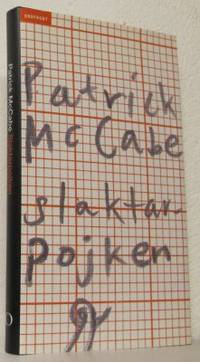 Patrick
McCabe
slaktar-
pojken
Patrick McCabe Slaktarpojken